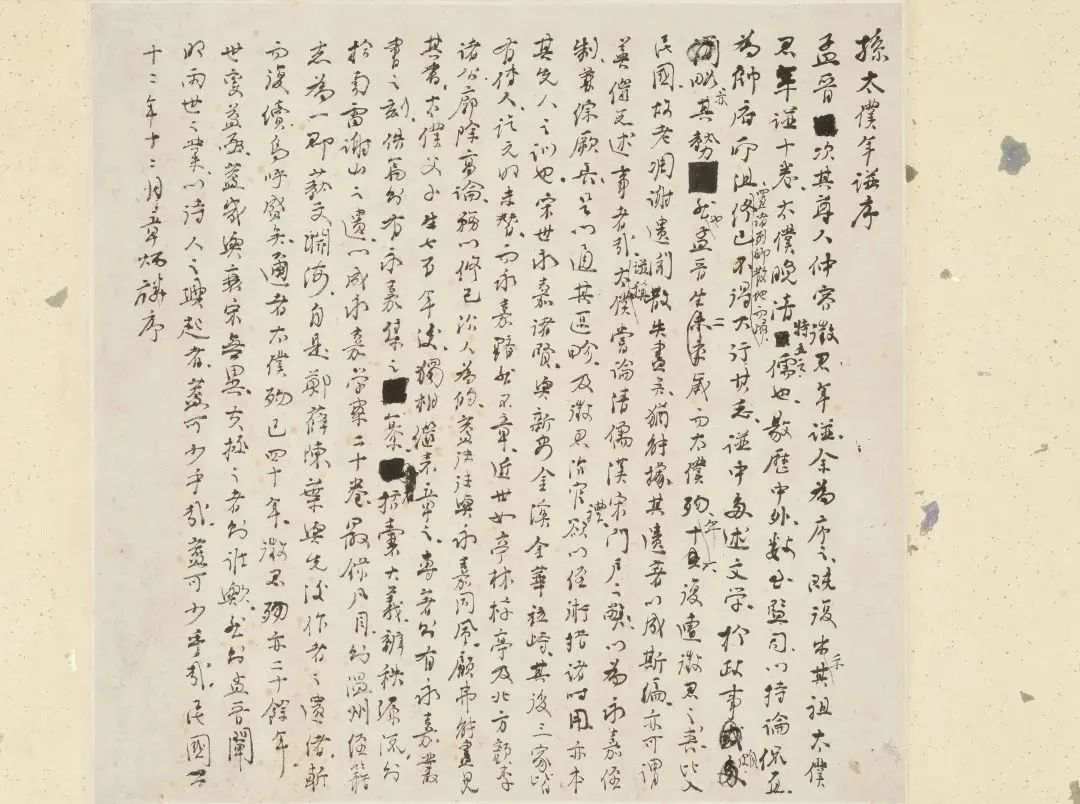 孫太僕年譜序
孟晉次其尊人仲容徵君年譜余為序之既復出示其祖太僕
君年譜十卷太僕晚清特立之儒也敭歷中外數出監司以持論侃直
為帥府所沮置諸列卿散地而頃終已不得大行其志譜中多述文學於政事頗
闊略亦其勢然也孟晉生二歲而太僕歿十年復遭徵君之喪比入
民國故老凋謝遺聞散失盡矣猶能據其遺書以成斯編亦可謂
善繼志述事者哉太僕嘗論清儒漢宋門戶之弊以為永嘉經
制兼綜厥長足以通其區畛及徵君治官禮欲以經術措諸時用亦本
其先人之訓也宋世永嘉諸賢與新安金溪金華並峙其後三家皆
有傳人訖元明未替而永嘉黯然不章近世如亭林桴亭及北方顏李
諸公廓除高論務以修己治人為的蓋往往與永嘉同風顧弗能盡見
其書太僕父子生七百年後獨相繼表章之專著則有永嘉叢
書之刻佚篇則有永嘉集之纂括囊大義辨秩源流則
拾南雷謝山之遺以成永嘉學案二十卷最錄凡目則溫州經籍
志為一郡藝文淵海自是鄭薛陳葉與先後作者之遺緒斬
而復續烏呼盛矣邇者太僕歿已四十年徵君歿亦二十餘年
世變益亟蓋幾與衰宋無異支拯之者則誰歟然則孟晉闡
明兩世之業以待人之興起者蓋可少乎哉蓋可少乎哉民國二
十二年十二月章炳麟序